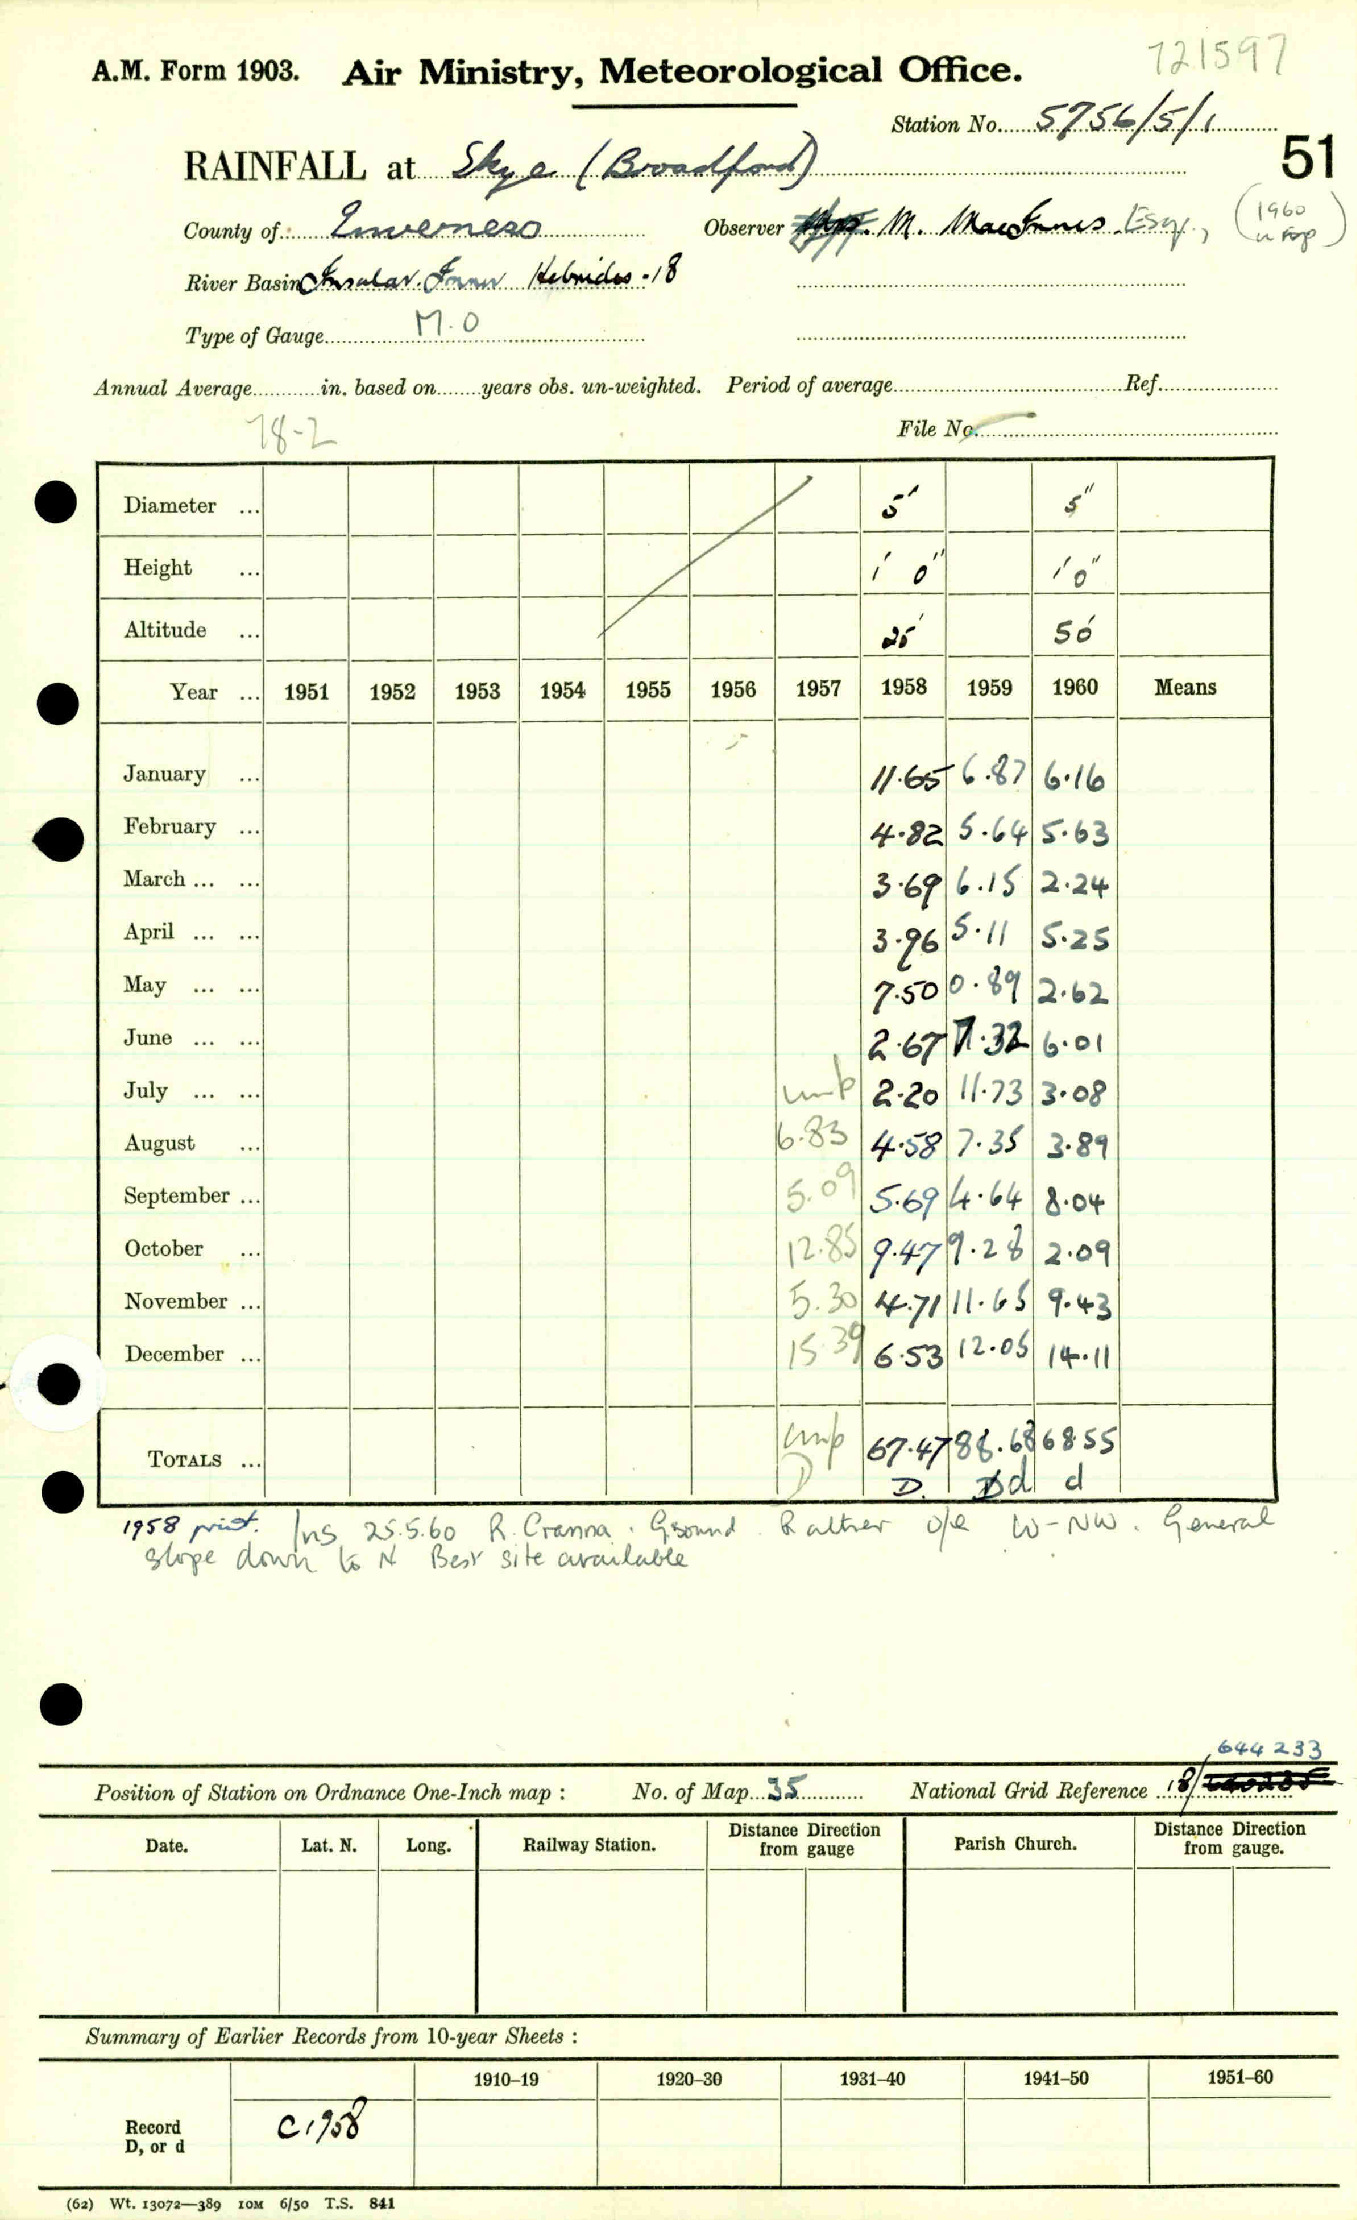 721597
A.M. Form 1903. Air Ministry, Meteorological Office.
Station No. 5756/5/1
51
RAINFALL at Skye (Broadford)
County of Inverness Observer M. MacInnes Esq., (1960
River Basin Insular. Inner Hebrides - 18
Type of Gauge M.O
Annual Average in. based on years obs. un-weighted. Period of average Ref.
78-2
File No.
Diameter ... 5' 5"
Height ... 1' 0" 1' 0"
Altitude ... 25' 50'
Year ... 1951 1952 1953 1954 1955 1956 1957 1958 1959 1960 Means
January ... 11.65 6.87 6.16
February ... 4.82 5.64 5.63
March ... ... 3.69 6.15 2.24
April ... ... 3.96 5.11 5.25
May ... ... 7.50 0.89 2.62
June ... ... 2.67 7.32 6.01
July ... ... imp 2.20 11.73 3.08
August ... 6.83 4.58 7.35 3.89
September ... 5.09 5.69 4.64 8.04
October ... 12.85 9.47 9.28 2.09
November ... 5.30 4.71 11.65 9.43
December ... 15.39 6.53 12.05 14.11
TOTALS ... imp 67.47 88.68 68.55
D D. d d
1958 print. Ins 25.5.60 R. Cranna. Ground Rather o/e W-NW. General
slope down to N Best site available
644 233
Position of Station on Ordnance One-Inch map : No. of Map 35 National Grid Reference 18/
Date. Lat. N. Long. Railway Station. Distance from gauge Direction Parish Church. Distance from gauge. Direction
Summary of Earlier Records from 10-year Sheets :
1910–19 1920–30 1931–40 1941–50 1951–60
Record C 1958
D, or d
(62) Wt. 13072—389 10M 6/50 T.S. 841